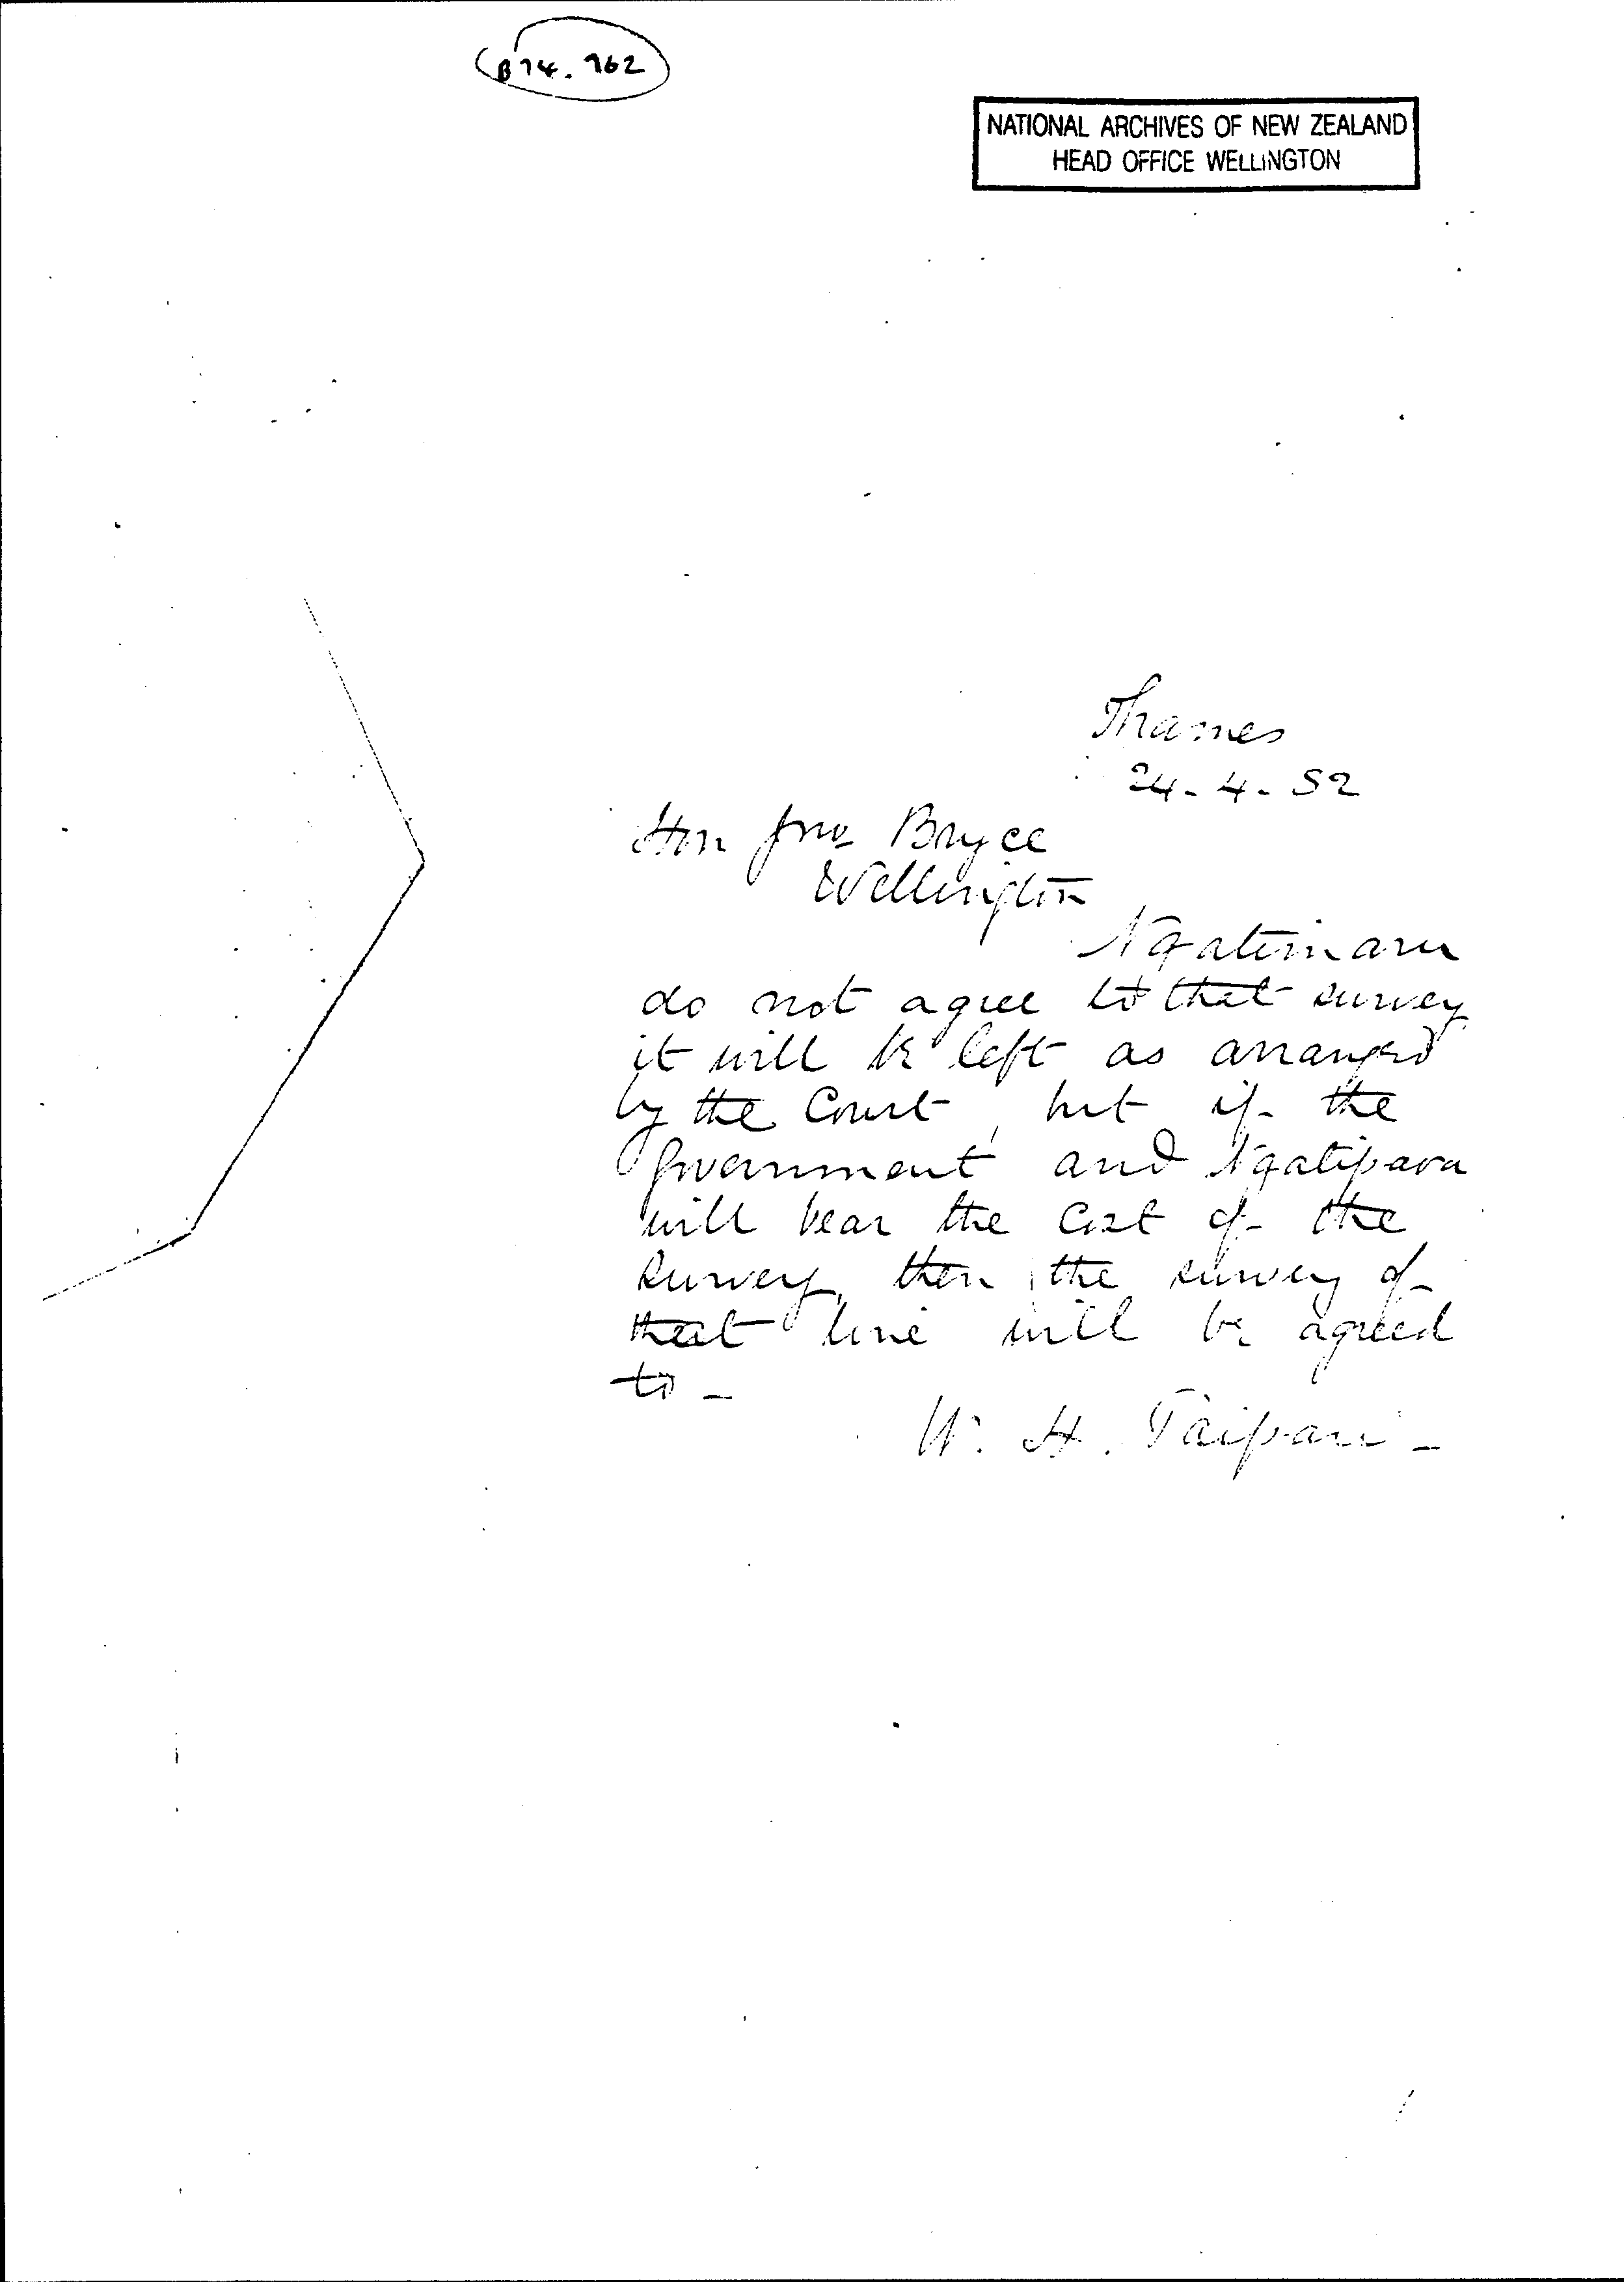 B74.762
NATIONAL ARCHIVES OF NEW ZEALAND
HEAD OFFICE WELLINGTON
Thames
24-4-82
Hon Jno Bryce
Wellington
Ngatimaru
do not agree to that survey
it will be left as arranged
by the Court, but if the
Government and Ngatipaoa
will bear the cost of the
survey, then the survey of
that line will be agreed
to -
W. H. Taipari -